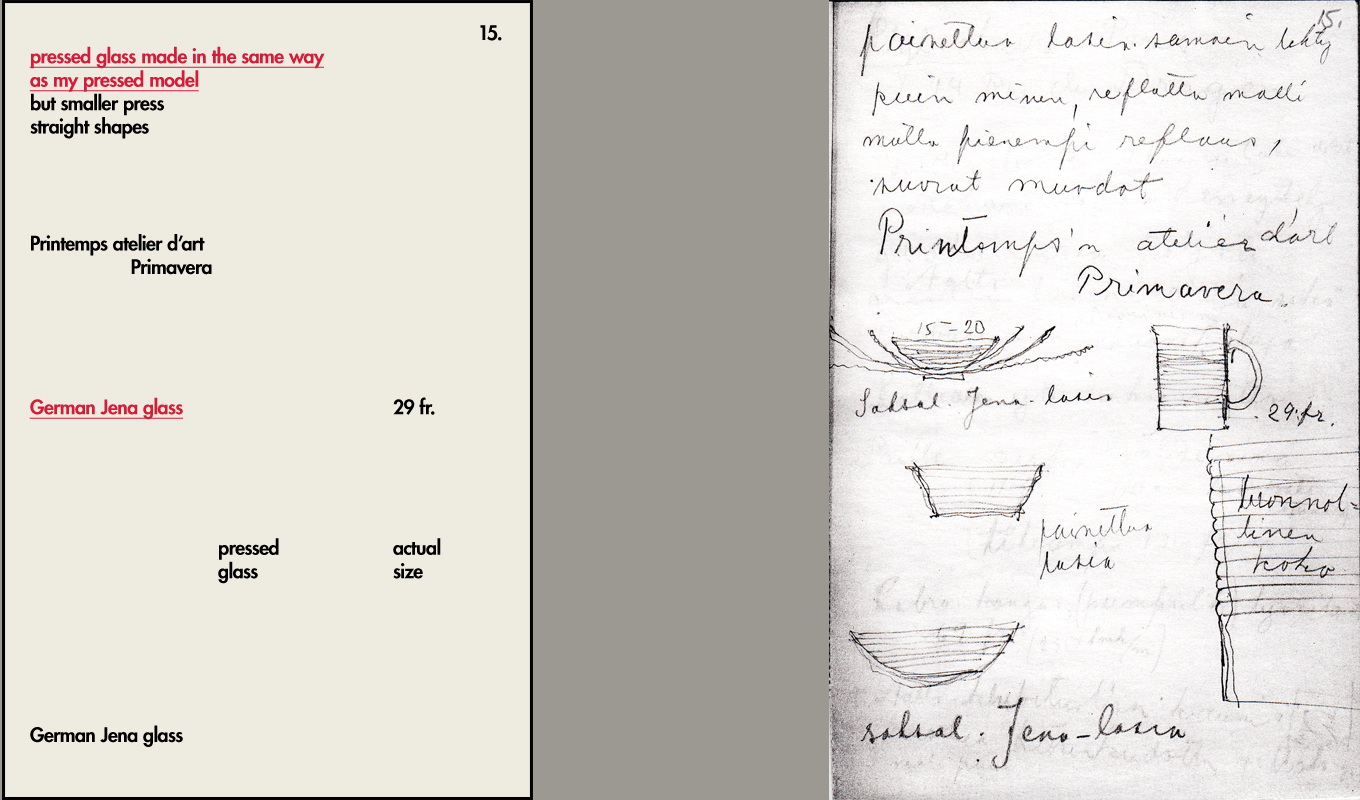 15.
pressed glass made in the same way
as my pressed model
but smaller press
straight shapes
Printemps atelier d’art
Primavera
German Jena glass
29 fr.
pressed
glass
actual
size
German Jena glass
15.
painettua lasia. samoin tehty
kuin minun, reflattu malli
mutta pienempi reflaus,
suorat muodot
Printemps'n atelier d'art
Primavera.
15 – 20
Saksal. Jena-lasia
29 fr.
luonnol=
linen
koko
painettua
lasia
saksal. Jena-lasia